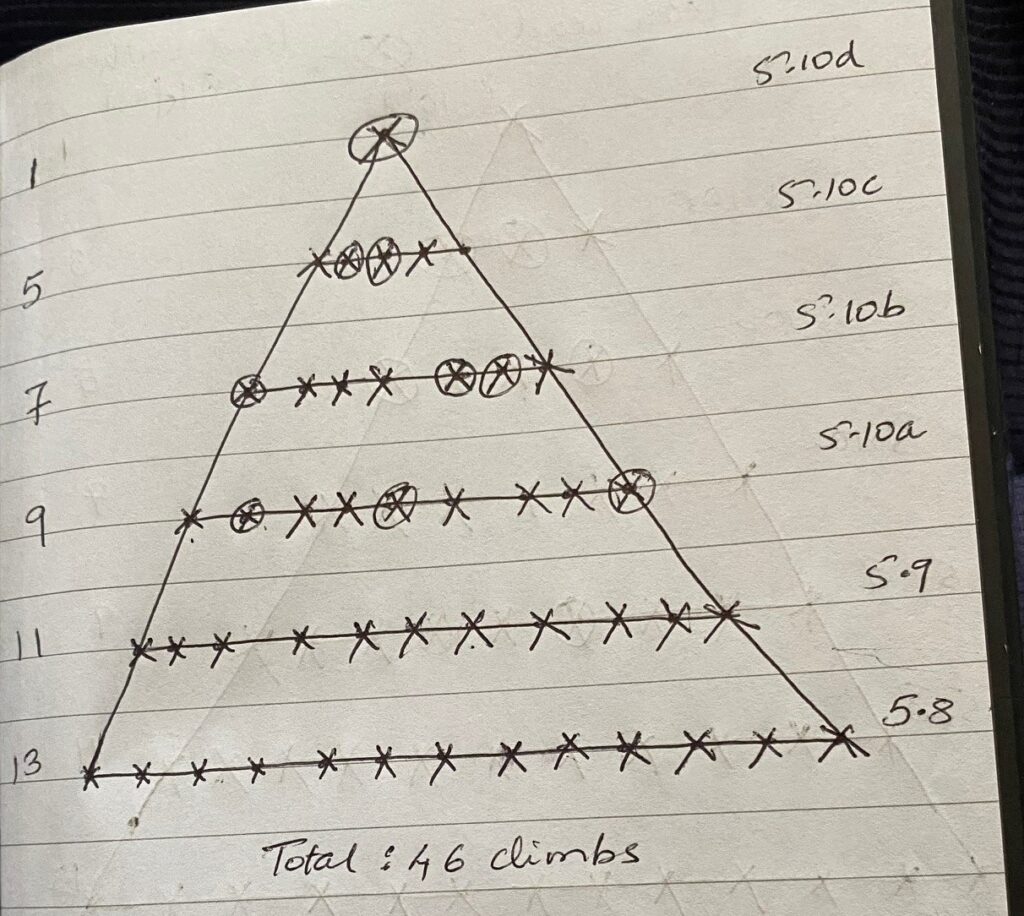 5.10d
1
5.10c
5
5.10b
7
5.10a
9
5.9
11
5.8
13
Total : 46 climbs